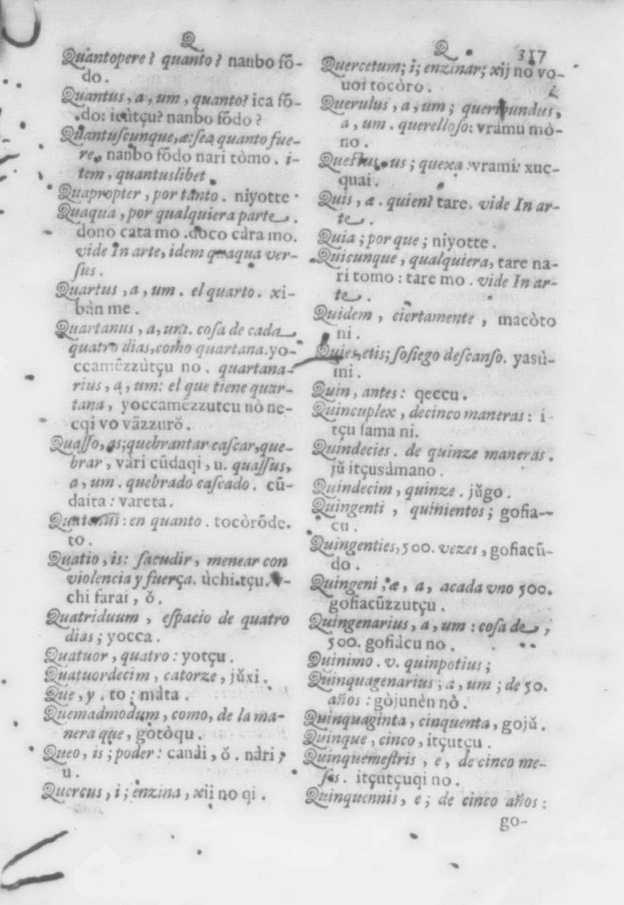 Q
Quantopere? quanto? nanbo fŏ-
do.
Quantus, a, um, quanto? ica fŏ-
do: icùtçu? nanbo fŏdo?
Quantuscunque, a: sea quanto fue-
re, nanbo fŏdo nari tòmo. i-
tem, quantuslibet.
Quapropter, por tanto. niyotte.
Quaqua, por qualquiera parte.
dono cata mo. doco càra mo.
vide in arte, idem quaqua ver-
sus.
Quartus, a, um. el quarto. xi-
bàn me.
Quartanus, a, um. cosa de cada
quatro dias, como quartana. yo-
ccamèzzùtçu no. quartana-
rius, a, um: el que tiene quar-
tana, yoccamèzzutcu nò ne-
cqi vo vãzzurŏ.
Quasso, as; quebrantar cascar, que-
brar, vàri cũdaqi, u. quassus,
a, um. quebrado cascado. cũ-
daita: vareta.
: en quanto. tocòrŏde.
to.
Quatio, is: sacudir, menear con
violencia y fuerça. ùchi.tçu.
chi farai, ŏ.
Quatriduum, espacio de quatro
dias; yocca.
Quatuor, quatro: yotçu.
Quatuordecim, catorze, jŭxi.
Que, y. to; màta.
Quemadmodum, como, de la ma-
nera que, gotòqu.
Queo, is; poder: canài, ŏ. nàri,
u.
Quercus, i; enzina, xii no qi.
Q 317
Quercetum; i; enzinar; xij no vo-
uoi tocòro.
Querulus, a, um; queribundus,
a, um. querelloso: vràmu mò-
no.
us; quexa: vrami: xuc-
quai.
Quis, a. quien? tare. vide In ar-
te.
Quia; por que; niyotte.
Quicunque, qualquiera, tare na-
ri tomo: tare mo. vide In ar-
te.
Quidem, ciertamente, macòto
ni.
Quies, etis; sosiego descanso. yasù-
mi.
Quin, antes: qeccu.
Quincuplex, decinco maneras: i
tçu sama ni.
Quindecies. de quinze maneras.
jŭ itçusàmano.
Quindecim, quinze. jŭgo.
Quingenti, quinientos; gofia-
cu.
Quingenties, 500. vezes, gofiacũ-
do.
Quingeni, æ, a, acada vno 500.
gofiacũzzutçu.
Quingenarius, a, um: cosa de,
500. gofiàcu no.
Quinimo. v. quinpotius;
Quinquagenarius; a, um; de 50.
años: gòjunèn nò.
Quinquaginta, cinquenta, gojŭ.
Quinque, cinco, itçutçu.
Quinquemestris, e, de cinco me-
ses. itçùtçuqi no.
Quinquennis, e; de cinco años:
go-